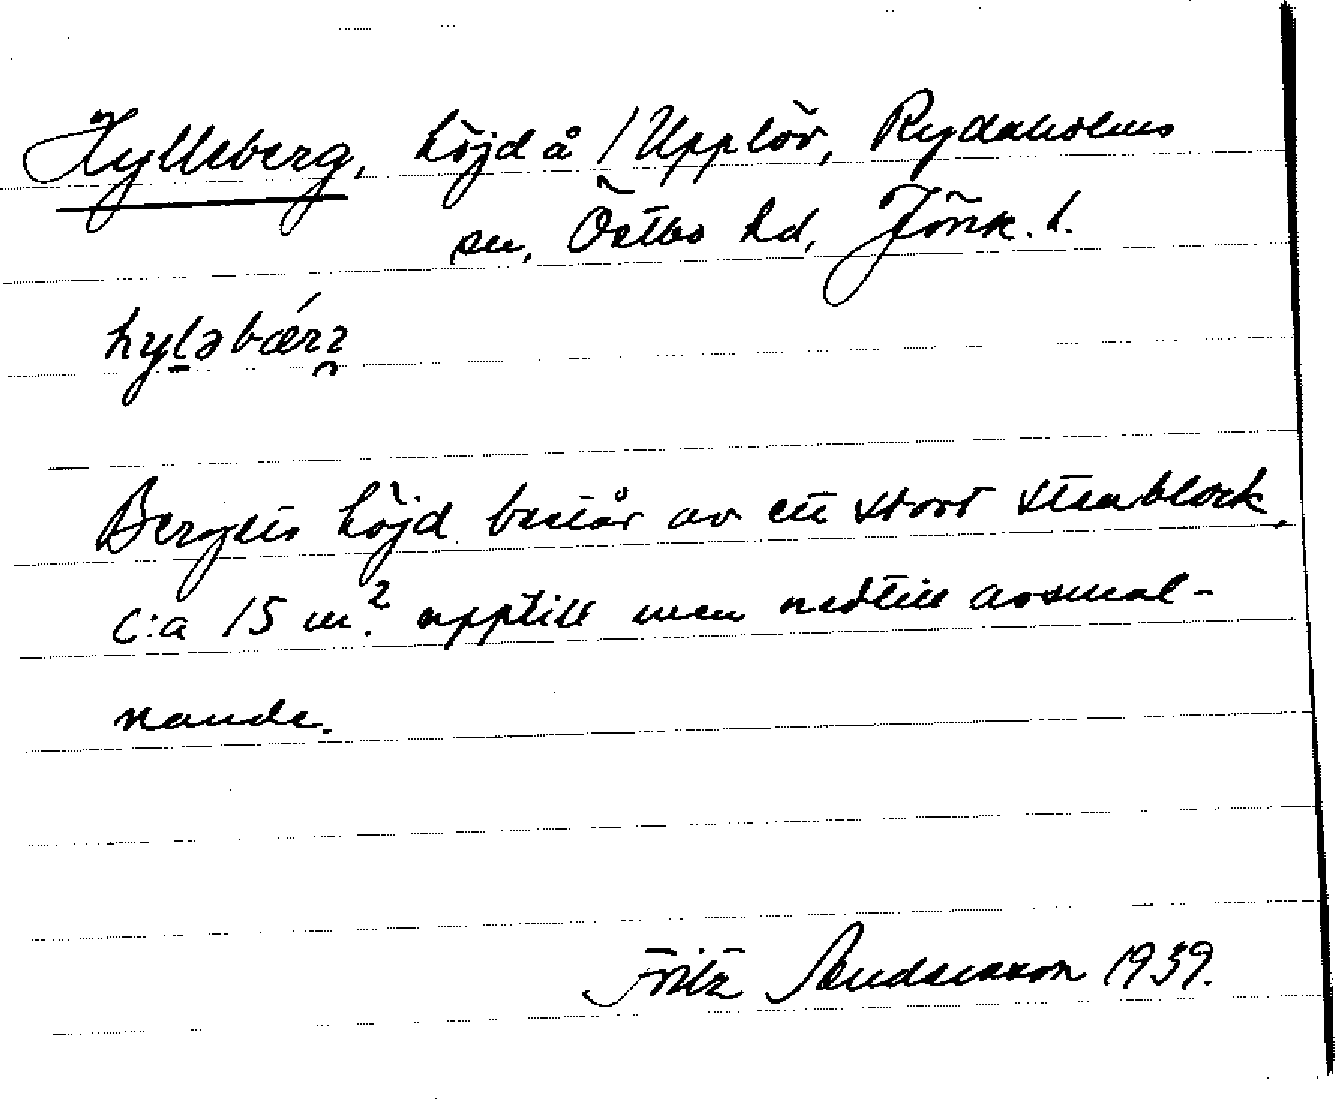 Hylleberg, höjd å / Upplöv, Rydaholms
sn, Östbo hd, Jönk. l.
hyləbær
Bergets höjd består av ett stort stenblock,
c:a 15 m² upptill men nedtill avsmal-
nande.
Fritz 1939.